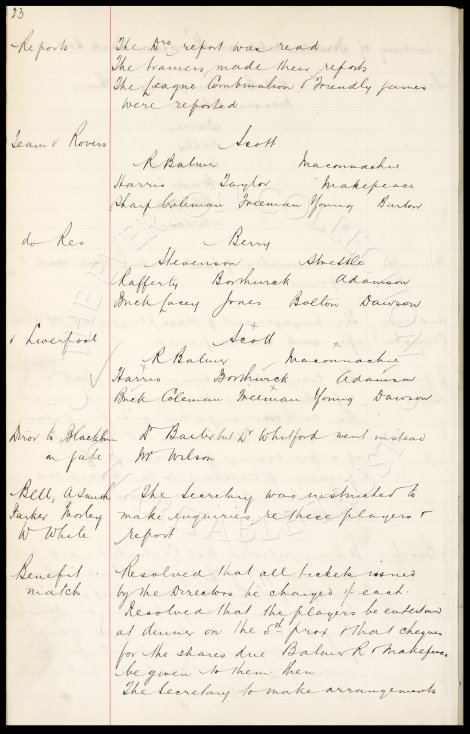 23
Reports The Drs report was read
The trainers made their reports
The League Combination & Friendly games
were reported
Team v Rovers Scott
R Balmer Maconnachie
Harris Taylor Makepeace
Sharp Coleman Freeman Young Barton
do Res Berry
Stevenson Strettle
Rafferty Borthwick Adamson
Buck Lacey Jones Bolton Dawson
v Liverpool Scott
R Balmer Maconnachie
Harris Borthwick Adamson
Buck Coleman Freeman Young Dawson
Direr to Blackburn Dr Baxter but Dr Whitford went instead
on gate Mr Wilson
Bell, A Smith The Secretary was instructed to
Parker Morley make enquiries re these players &
W White report
Benefit Resolved that all tickets issued
match by the Directors be charged /- each.
Resolved that the players be entertained
at dinner on the 5th prox & that cheques
for the shares due Balmer R & Makepeace
be given to them then.
The Secretary to make arrangements
THE EVERTON COLLECTION
CHARITABLE TRUST